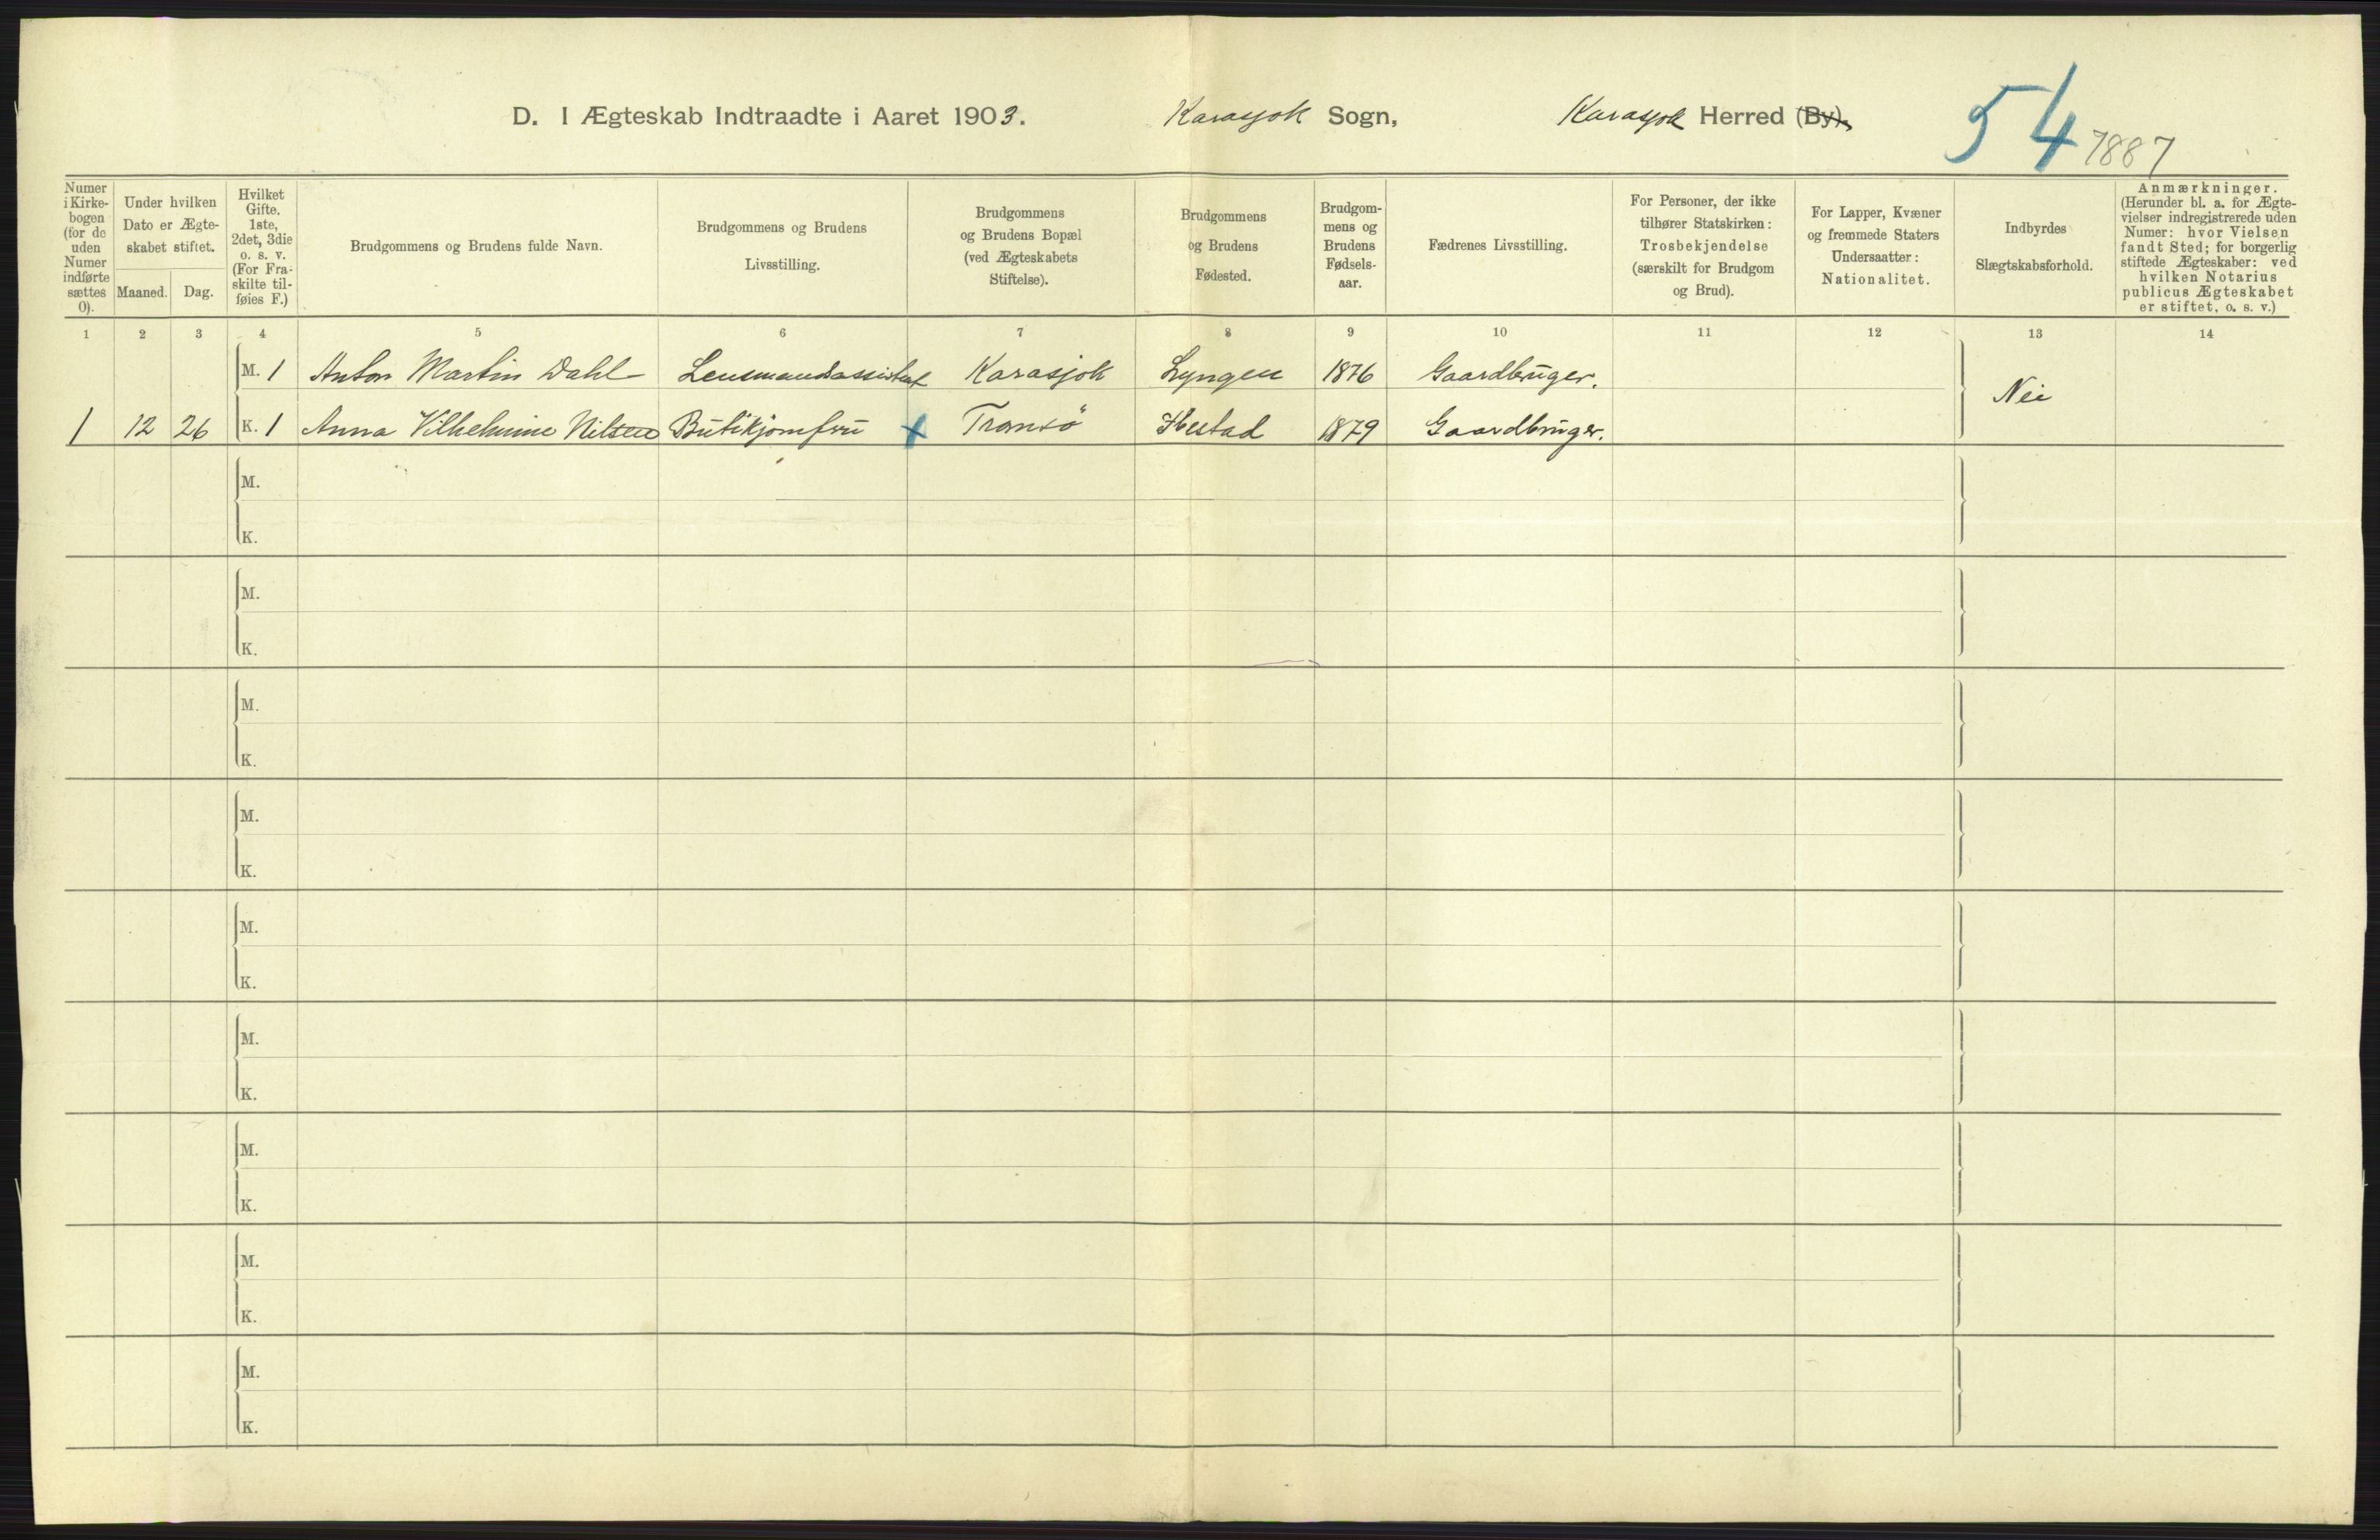 D. I Ægteskab Indtraadte i Aaret 1903. Karasjok Sogn, Karasjok Herred (By).
54 7887
Numer i Kirke- bogen (for de uden Numer indførte sættes 0).
Under hvilken Dato er Ægte- skabet stiftet.
Maaned. Dag.
Hvilket Gifte. 1ste, 2det, 3die o. s. v. (For Fra- skilte til- føies F.)
Brudgommens og Brudens fulde Navn.
Brudgommens og Brudens Livsstilling.
Brudgommens og Brudens Bopæl (ved Ægteskabets Stiftelse).
Brudgommens og Brudens Fødested.
Brudgom- mens og Brudens Fødsels- aar.
Fædrenes Livsstilling.
For Personer, der ikke tilhører Statskirken: Trosbekjendelse (særskilt for Brudgom og Brud).
For Lapper, Kvæner og fremmede Staters Undersaatter: Nationalitet.
Indbyrdes Slægtskabsforhold.
Anmærkninger. (Herunder bl. a. for Ægte- vielser indregistrerede uden Numer: hvor Vielsen fandt Sted; for borgerlig stiftede Ægteskaber: ved hvilken Notarius publicus Ægteskabet er stiftet, o. s. v.)
1 2 3 4 5 6 7 8 9 10 11 12 13 14
M. 1 Anton Martin Dahl Lensmandsassistent Karasjok Lyngen 1876 Gaardbruger.
Nei
1 12 26 K. 1 Anna Vilhelmine Nilsen Butikjomfru x Tromsö Ibestad 1879 Gaardbruger.
M.
K.
M.
K.
M.
K.
M.
K.
M.
K.
M.
K.
M.
K.
M.
K.
M.
K.